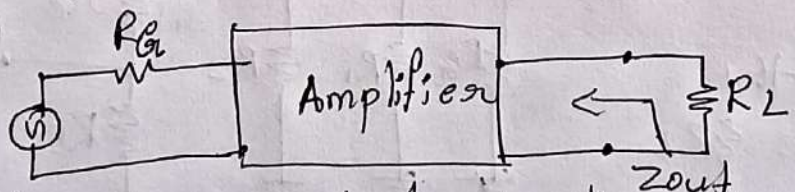 RG
Amplifier
RL
Zout